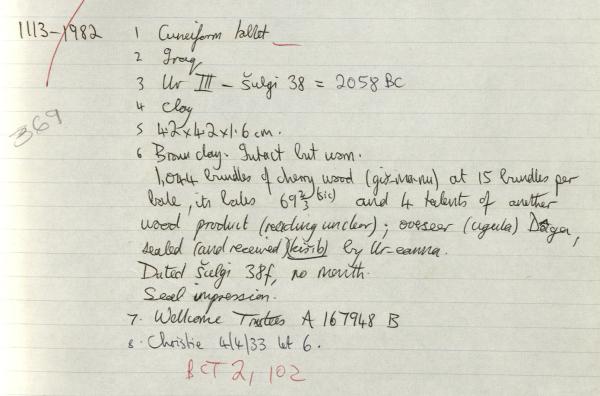 1113-1982 1 Cuneiform tablet
2 Iraq
3 Ur III - Šulgi 38 = 2058 BC
369
4 Clay
5 4.2 x 4.2 x 1.6 cm.
6 Brown clay. Intact but worn.
1,044 bundles of cherry wood (giš.manu) at 15 bundles per
bale, its bales 69 2/3 (sic) and 4 talents of another
wood product (reading unclear); overseer (ugula) Dager,
sealed (and received) (kišib) by Ur-eanna.
Dated Šulgi 38f, no month.
Seal impression.
7. Wellcome Trustees A 167948 B
8. Christie 4/4/33 lot 6.
BCT 2, 102